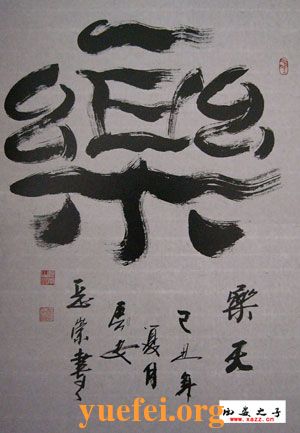 樂
樂天
己丑年
夏月
長安
岳崇書
yuefei.org
西安之子
www.xazz.cn